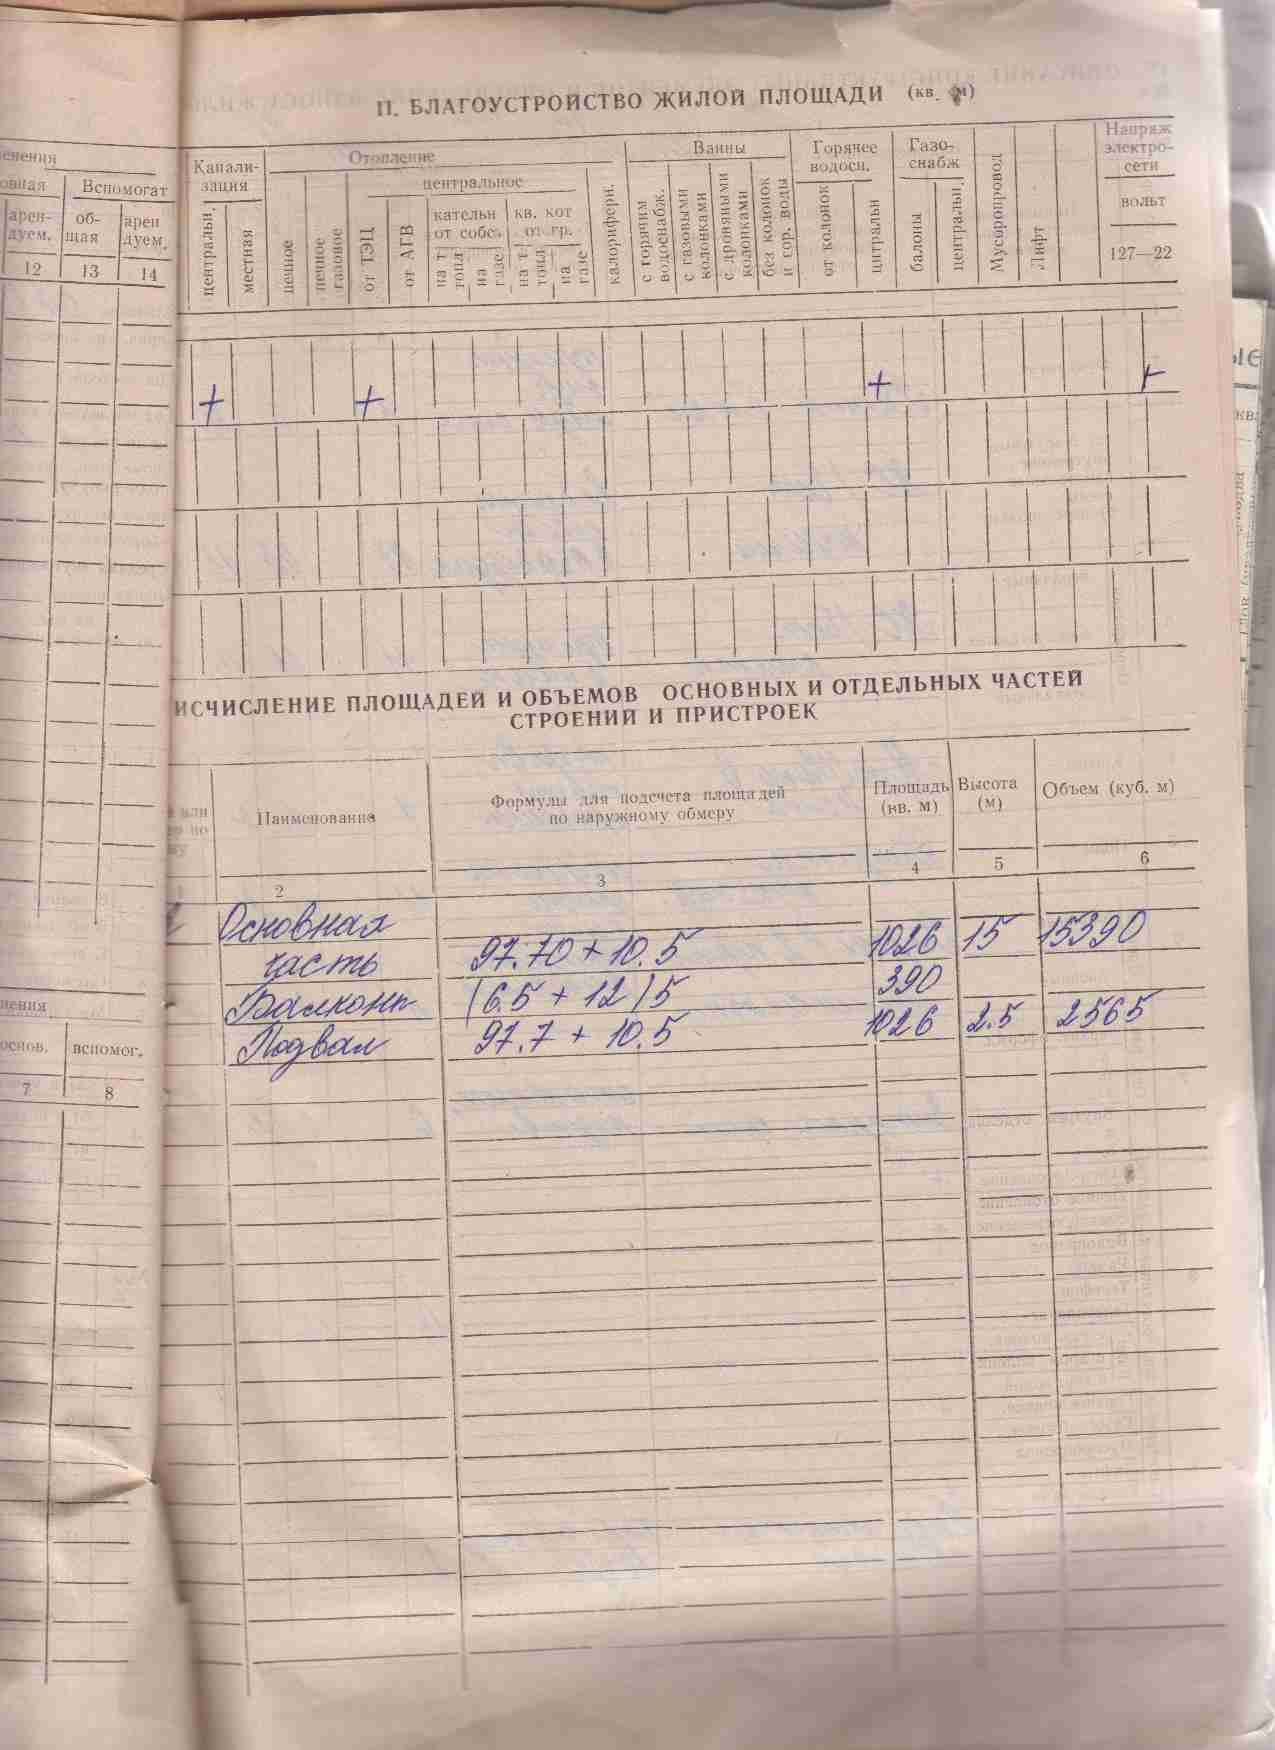 II. БЛАГОУСТРОЙСТВО ЖИЛОЙ ПЛОЩАДИ (кв. м)
Вспомогат
арен-
дуем.
об-
щая
арен
дуем.
12 13 14
Канали-
зация
центральн.
местная
Отопление
печное
печное
газовое
центральное
от ТЭЦ
от АГВ
кательн
от собс.
на т
топл
на
газе
кв. кот
от гр.
на т
топл
на
газе
калориферн.
Ванны
с горячим
водоснабж.
с газовыми
колонками
с дровяными
колонками
без колонок
и гор. воды
Горячее
водосн.
от колонок
цитральн
Газо-
снабж
балоны
центральн.
Мусоропровод
Лифт
Напряж
электро-
сети
вольт
127—22
+ + + +
ИСЧИСЛЕНИЕ ПЛОЩАДЕЙ И ОБЪЕМОВ ОСНОВНЫХ И ОТДЕЛЬНЫХ ЧАСТЕЙ
СТРОЕНИЙ И ПРИСТРОЕК
Наименование
Формулы для подсчета площадей
по наружному обмеру
Площадь
(кв. м)
Высота
(м)
Объем (куб. м)
2 3 4 5 6
Основная
часть 97.70 + 10.5 1026 15 15390
(6.5 + 12)5 390
Подвал 97.7 + 10.5 1026 2.5 2565
основ. вспомог.
7 8